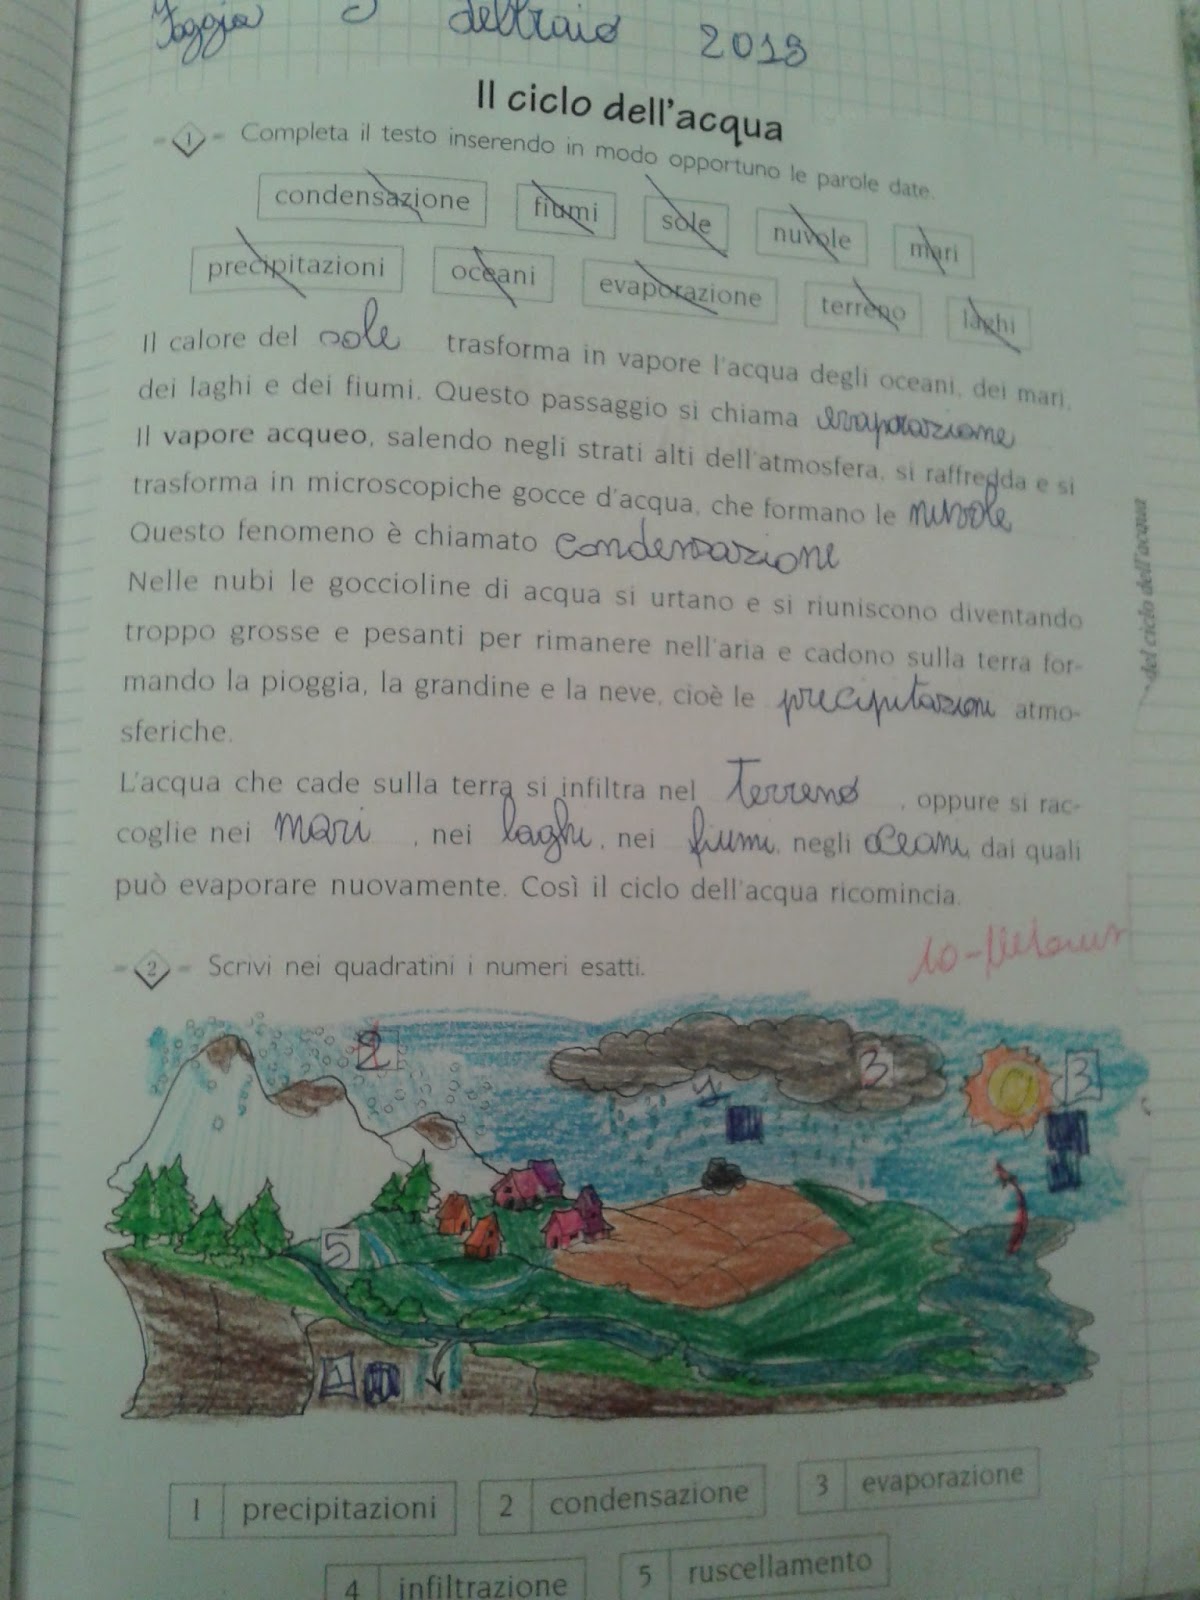 Foggia 5 febbraio 2013
Il ciclo dell'acqua
1 Completa il testo inserendo in modo opportuno le parole date.
condensazione fiumi sole nuvole mari
precipitazioni oceani evaporazione terreno laghi
Il calore del sole trasforma in vapore l'acqua degli oceani, dei mari,
dei laghi e dei fiumi. Questo passaggio si chiama evaporazione
Il vapore acqueo, salendo negli strati alti dell'atmosfera, si raffredda e si
trasforma in microscopiche gocce d'acqua, che formano le nuvole
Questo fenomeno è chiamato condensazione
Nelle nubi le goccioline di acqua si urtano e si riuniscono diventando
troppo grosse e pesanti per rimanere nell'aria e cadono sulla terra for-
mando la pioggia, la grandine e la neve, cioè le precipitazioni atmo-
sferiche.
L'acqua che cade sulla terra si infiltra nel terreno, oppure si rac-
coglie nei mari, nei laghi, nei fiumi, negli oceani, dai quali
può evaporare nuovamente. Così il ciclo dell'acqua ricomincia.
del ciclo dell'acqua
10
2 Scrivi nei quadratini i numeri esatti.
2 3 3
1
5
1 precipitazioni 2 condensazione 3 evaporazione
4 infiltrazione 5 ruscellamento